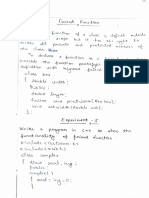 Friend Function
function of a class is defined outside
scope but it has the right to
access all private and protected members of
the class.
To declare a function as a
precede the function prototype
with
class Box
{
double width;
public:
double length;
friend void printWidth(Box box);
void setWidth(double wid);
};
Experiment - 5
Write a program in C++ to show the
functionality of friend function
#include <iostream.h>
#include <conio.h>
class complex
{
public:
complex()
{ real = img = 0;